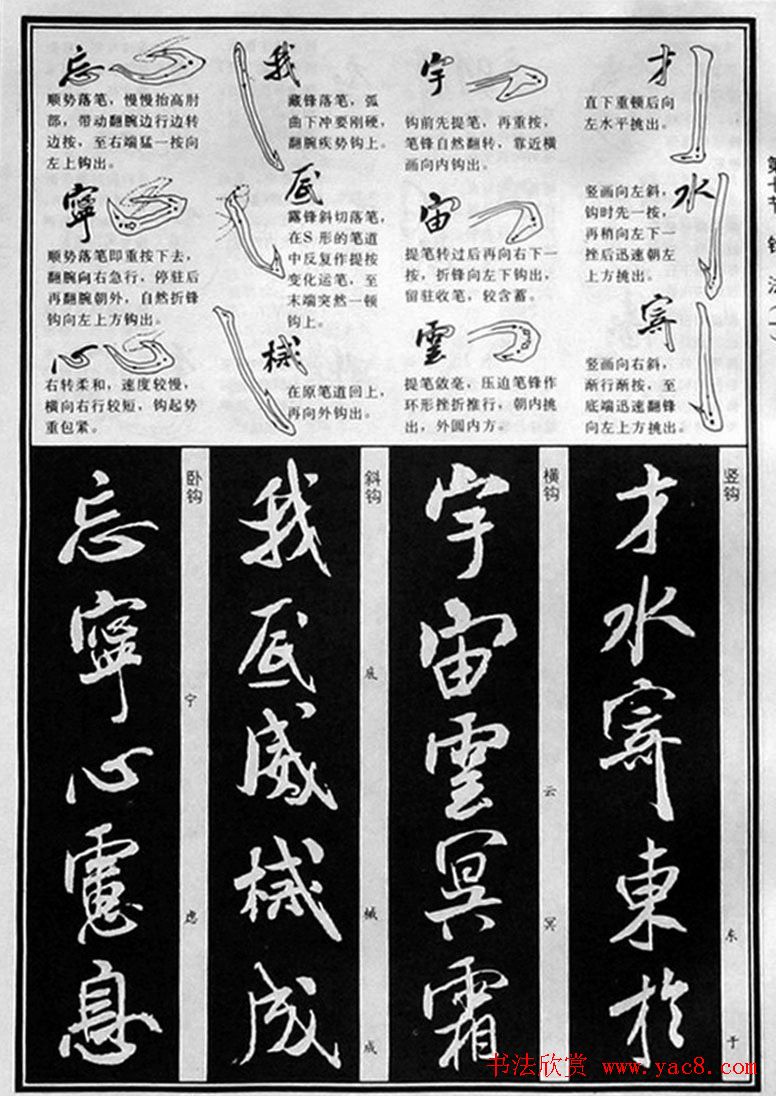 才
直下重顿后向
左水平挑出。
水
竖画向左斜，
钩时先一按，
再稍向左下一
挫后迅速朝左
上方挑出。
竖画向右斜，
渐行渐按，至
底端迅速翻锋
向左上方挑出。
宇
钩前先提笔，再重按，
笔锋自然翻转，靠近横
画向内钩出。
宙
提笔转过后再向右下一
按，折锋向左下钩出，
留驻收笔，较含蓄。
雲
提笔敛毫，压边笔锋作
环形挫折推行，朝内挑
出，外圆内方。
我
藏锋落笔，弧
曲下冲要刚硬，
翻腕疾势钩上。
底
露锋斜切落笔，
在S形的笔道
中反复作提按
变化运笔，至
末端突然一顿
钩上。
械
在原笔道回上，
再向外钩出。
忘
顺势落笔，慢慢抬高肘
部，带动翻腕边行边转
边按，至右端猛一按向
左上钩出。
寧
顺势落笔即重按下去，
翻腕向右急行，停驻后
再翻腕朝外，自然折锋
钩向左上方钩出。
心
右转柔和，速度较慢，
横向右行较短，钩起势
重包紧。
竖钩
东
于
才水東於
横钩
云
冥
宇宙雲冥霜
斜钩
底
械
成
我底威械成
卧钩
宁
虑
忘寧心慮息
书法欣赏 www.yac8.com